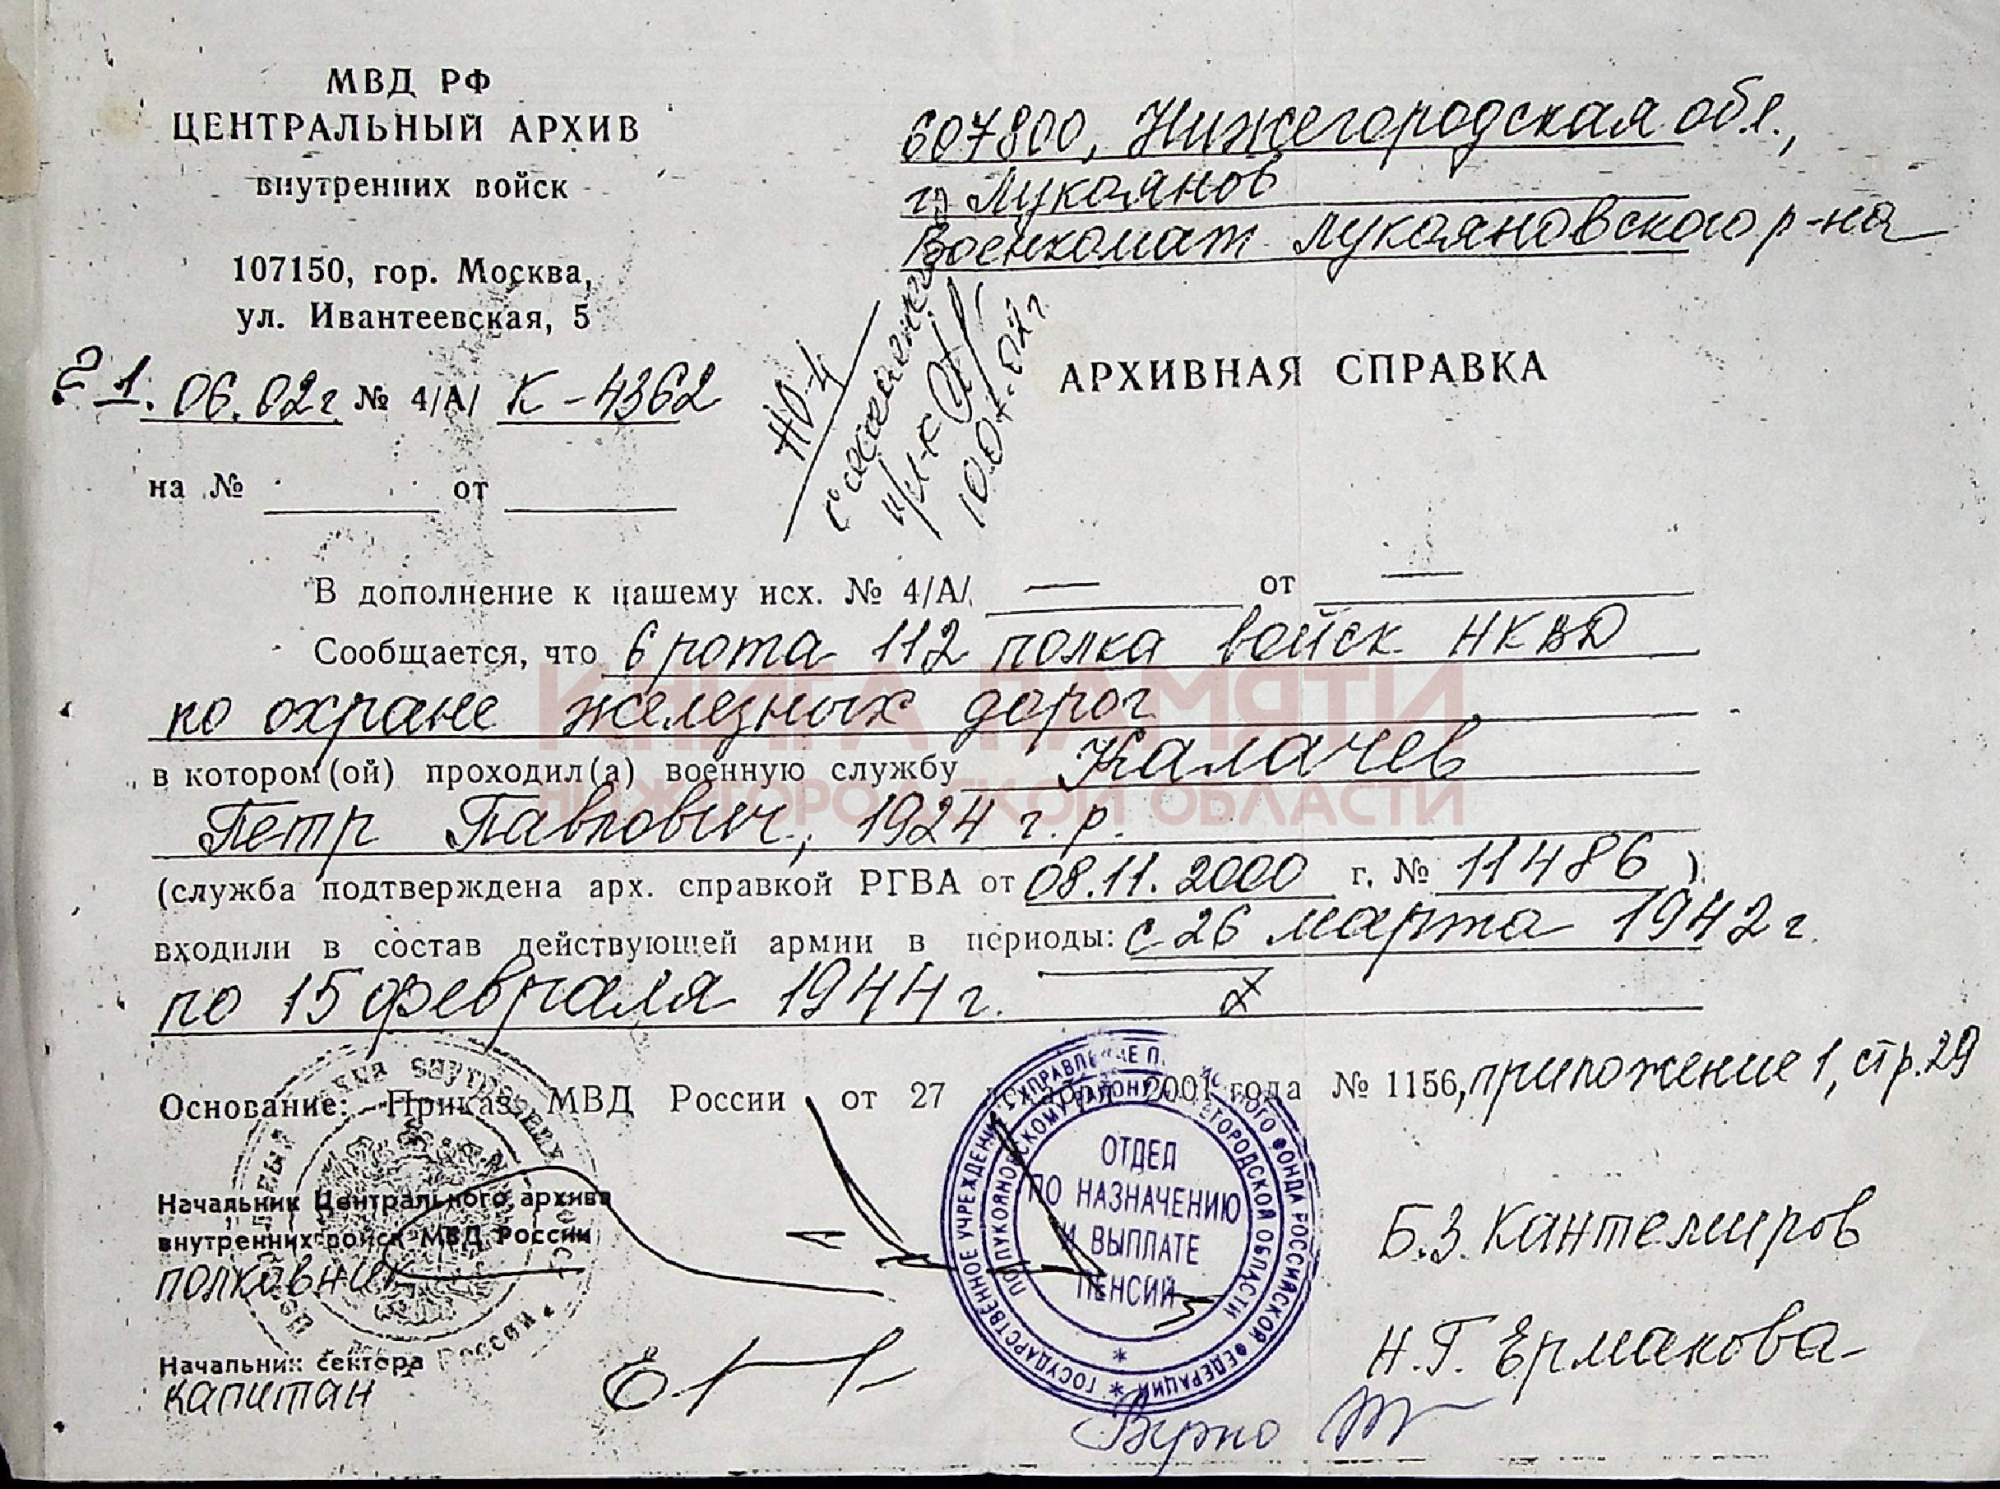 МВД РФ
ЦЕНТРАЛЬНЫЙ АРХИВ
внутренних войск
107150, гор. Москва,
ул. Ивантеевская, 5
1.06.02г № 4/А/ К-4362
на № от
607800, Нижегородская обл.,
г. Лукоянов
Военкомат Лукояновского р-на
НО-4
10.07.02г.
АРХИВНАЯ СПРАВКА
В дополнение к нашему исх. № 4/А/ — от —
Сообщается, что 6 рота 112 полка войск НКВД
по охране железных дорог
в котором(ой) проходил(а) военную службу Калачев
Петр Павлович, 1924 г.р.
(служба подтверждена арх. справкой РГВА от 08.11.2000 г. № 11486)
входили в состав действующей армии в периоды: с 26 марта 1942 г.
по 15 февраля 1944 г.
Основание: Приказ МВД России от 27 2001 года № 1156, приложение 1, стр. 29
Начальник Центрального архива
внутренних войск МВД России
полковник
Б.З. Кантемиров
Начальник сектора
капитан
Н.Г. Ермакова
ГОСУДАРСТВЕННОЕ УЧРЕЖДЕНИЕ УПРАВЛЕНИЕ ФОНДА РОССИЙСКОЙ ФЕДЕРАЦИИ
ПО ЛУКОЯНОВСКОМУ РАЙОНУ НИЖЕГОРОДСКОЙ ОБЛАСТИ
ОТДЕЛ
ПО НАЗНАЧЕНИЮ
И ВЫПЛАТЕ
ПЕНСИЙ
Верно
КНИГА ПАМЯТИ
НИЖЕГОРОДСКОЙ ОБЛАСТИ